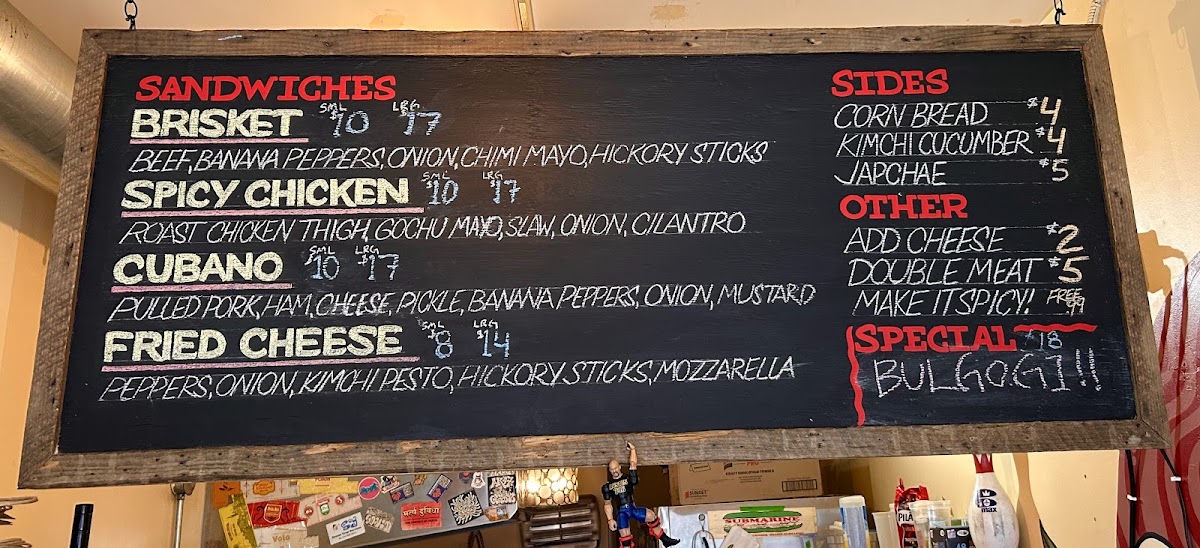 SANDWICHES
BRISKET SML $10 LRG $17
BEEF, BANANA PEPPERS, ONION, CHIMI MAYO, HICKORY STICKS
SPICY CHICKEN SML $10 LRG $17
ROAST CHICKEN THIGH, GOCHU MAYO, SLAW, ONION, CILANTRO
CUBANO SML $10 LRG $17
PULLED PORK, HAM, CHEESE, PICKLE, BANANA PEPPERS, ONION, MUSTARD
FRIED CHEESE SML $8 LRG $14
PEPPERS, ONION, KIMCHI PESTO, HICKORY STICKS, MOZZARELLA
SIDES
CORN BREAD $4
KIMCHI CUCUMBER $4
JAPCHAE $5
OTHER
ADD CHEESE $2
DOUBLE MEAT $5
MAKE IT SPICY! FREE
SPECIAL 18
BULGOGI!!
Volo
SUBMARINE
max